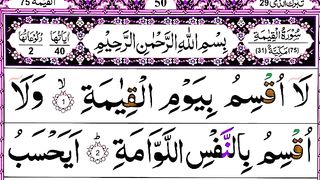 القيمة 75
50
تبرك الذى 29
اٰيَاتُهَا 40
رُكُوْعَاتُهَا 2
بِسْمِ اللّٰهِ الرَّحْمٰنِ الرَّحِيْمِ
سُوْرَةُ الْقِيٰمَةِ
(75) مَكِّيَّةٌ (31)
لَاۤ اُقْسِمُ بِيَوْمِ الْقِيٰمَةِ ۙ‏ 1 وَلَاۤ
اُقْسِمُ بِالنَّفْسِ اللَّوَّامَةِ ؕ‏ 2 اَيَحْسَبُ